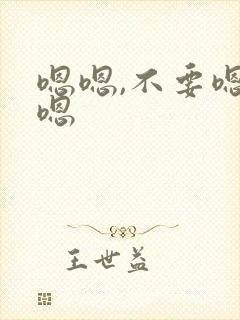 嗯嗯,不要嗯
嗯
王世益